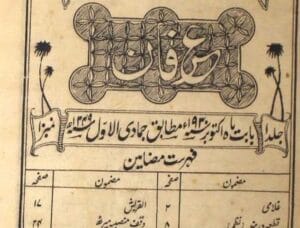 عرفان
جلد ۱
بابت ماہ اکتوبر ۱۹۳۰ء مطابق جمادی الاول ۱۳۴۹ھ
نمبر ۱
فہرست مضامین
مضمون صفحہ مضمون صفحہ
غلامی ۲ القریش ۱۷
۵ ۲۴